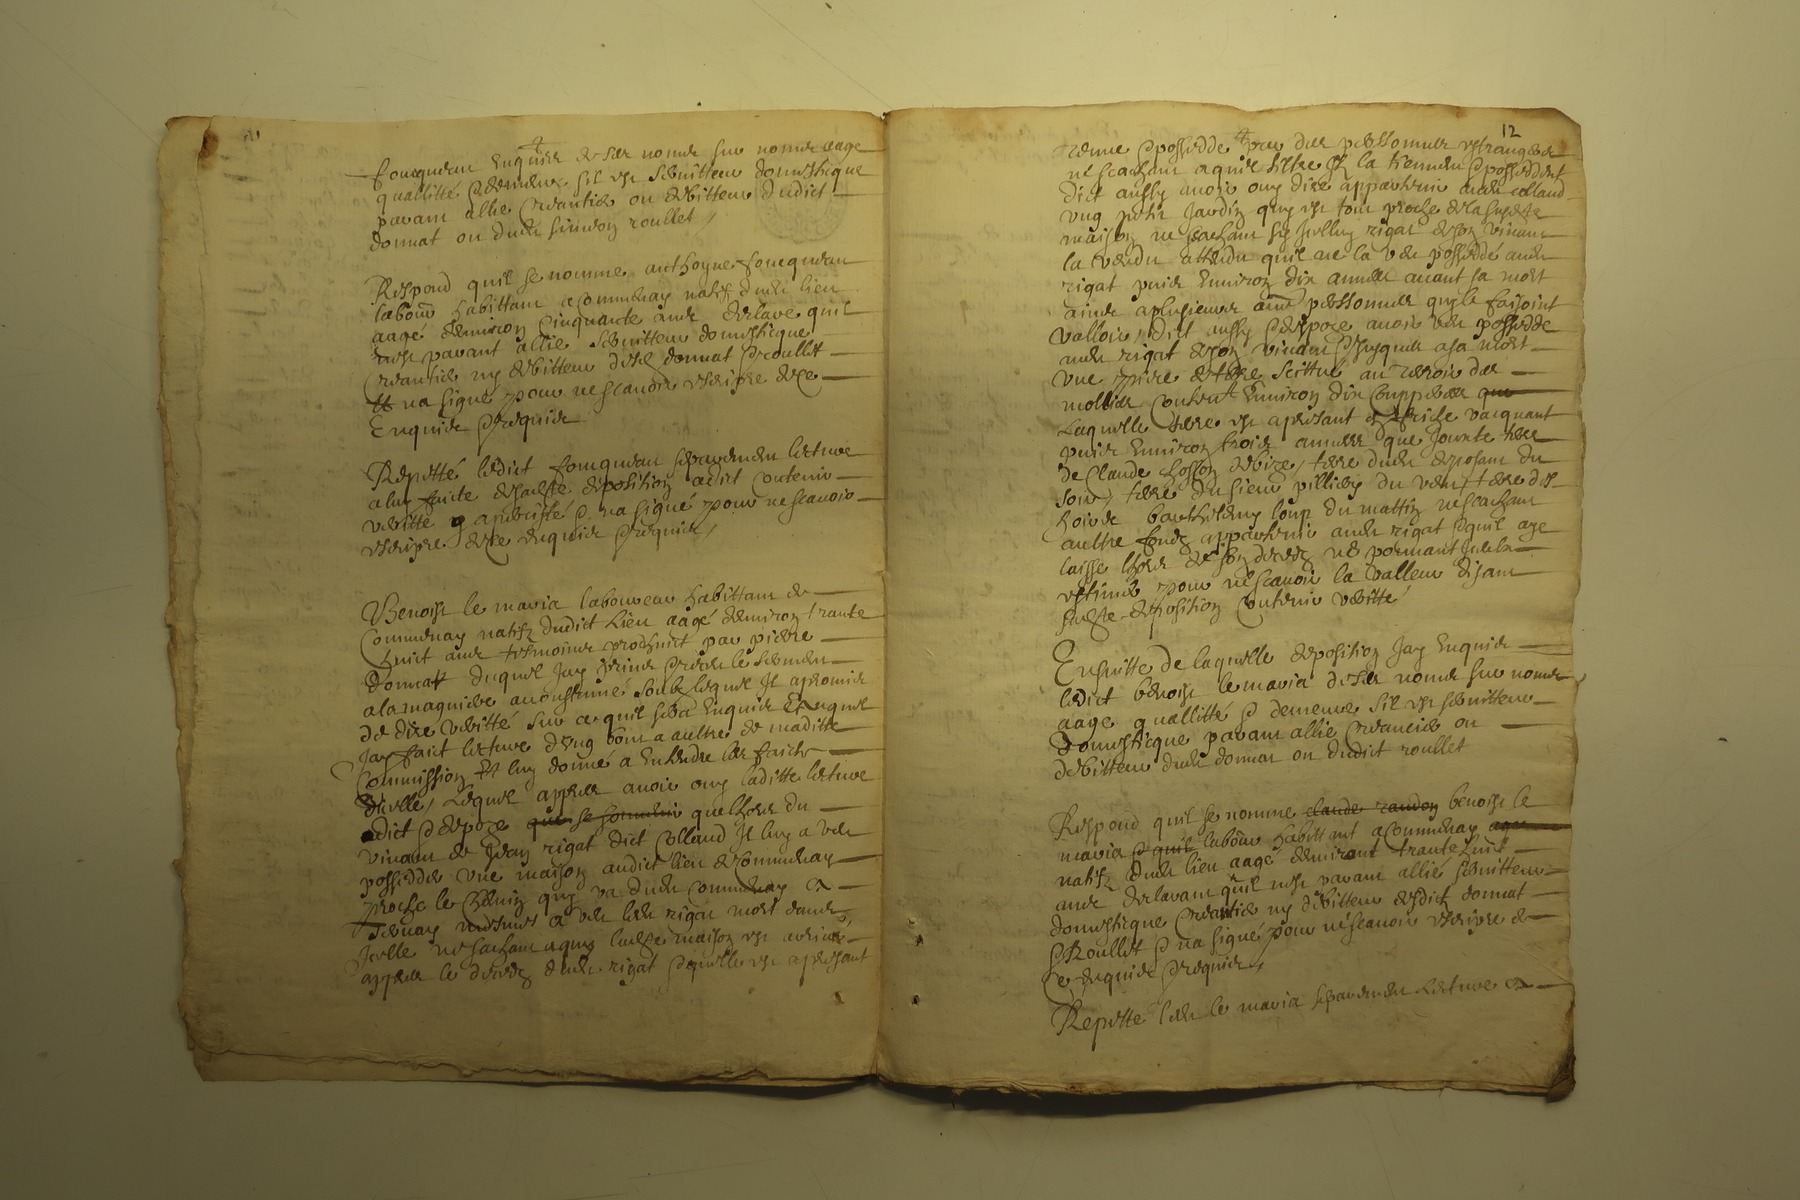 fourqueran Enquis de ses nomz sur nomz aage
quallitté & demeure sil est serviteur domesticque
parant allie creantier ou debitteur dudict
donnat ou dudt simeon roullet /
Respond quil se nomme anthoyne fourqueran
labour habittant a Communay natif dudt lieu
aagé denviron cinquante ans declare quil
nest parant allie serviteur domesticque
creantier ny debitteur desd donnat & roullet
Et na signé pour ne scavoir escripre de ce
Enquis & requis
Repetté ledict fourqueran separement lecture
a luy faicte de sadte déposition a dict contenir
veritté y a persisté & na signé pour ne scavoir
escripre de ce enquis & requis /
Benoist le maria laboureur habittant de
Communay natifz dudict lieu aagé denviron trante
huict ans tesmoins produict par pierre
donnat duquel Jay prins & receu le serment
a la maniere accoustumé soubz lequel Il a promis
de dire veritté sur ce quil sera Enquis Et auquel
Jay faict lecture dung bout a aultre de maditte
Commission Et luy donné a Entendre les faictz
dicelle / Lequel appres avoir ouy laditte lecture
a dict & depoze que se souvenir que lhors du
vivant de Jean rigat dict Colland Il luy a veu
possedder une maison audict lieu de Communay
proche le chemin quy va dudt Communay a
ternay mesmes a veu ledt rigat mort dans
Icelle ne sachant a quy ladte maison est arrivé
appres le decedz dudt rigat & quelle est a presant
12
tenue & possedde par des personnes estrangeres
ne scachant a quel tiltre Ilz la tiennent & posseddent
dict aussy avoir ouy dire appartenir audt colland
ung petit Jardin quy est tout proche de la susdte
maison ne scachant sy Icelluy rigat de son vivant
la vendu attendu quil ne la veu possedé audt
rigat puis Environ dix annees avant sa mort
ains a plusieurs aultres personnes quy le faisoint
valloir / dict aussy & depoze avoir veu possedde
audt rigat de son vivant & Jusques a sa mort
une piece de terre scittué au terroir des
mollies content Environ dix coupperes que
Laquelle terre est a presant en friche vacquant
puis Environ trois annees que Jouxte terre
de Claude hosson de bize / terre dudt deposant du
soir / terre du sieur villieu du vent / terre des
hoirs de barthelemy loup du mattin ne scachant
aultre fondz appartenir audt rigat & quil aye
laisse lhors de son decedz ne pouvant Iceluy
estimer pour ne scavoir la valleur disant
sadte deposition contenir veritté
Ensuitte de laquelle deposition Jay Enquis
ledict benoist le maria de ses nomz sur nomz
aage quallitté & demeure sil est serviteur
domesticque parant allie creancier ou
debitteur dudt donnat ou dudict roullet
Respond quil se nomme claude randon benoist le
maria & quil labour habittant a Communay
natifz dudt lieu aagé denviron trante huict
ans declarant quil nest parant allié serviteur
domesticque creantier ny debitteur desdict donnat
& Roullet & na signé pour ne scavoir escripre de
ce enquis & requis /
Repetté ledt le maria separement Lecture a